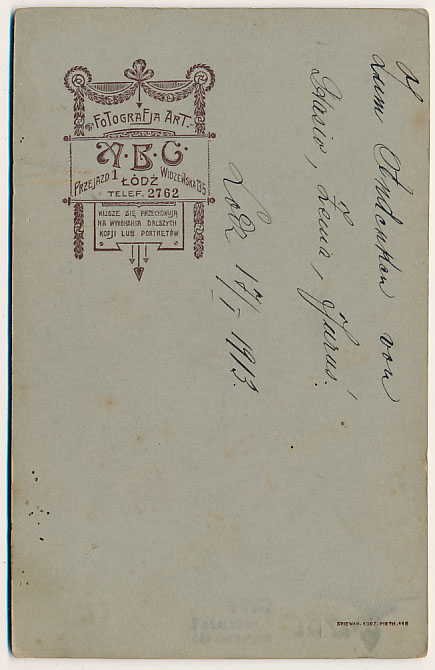 Fotografja Art.
A·B·C·
Przejazd 1 Łódź Widzewska 135
Telef. 2762
Klisze się przechowują
na wykonania dalszych
kopji lub portretów
Zum Andenken von
Stasio, Lena, Jurus!
Lodz 17/I 1913.